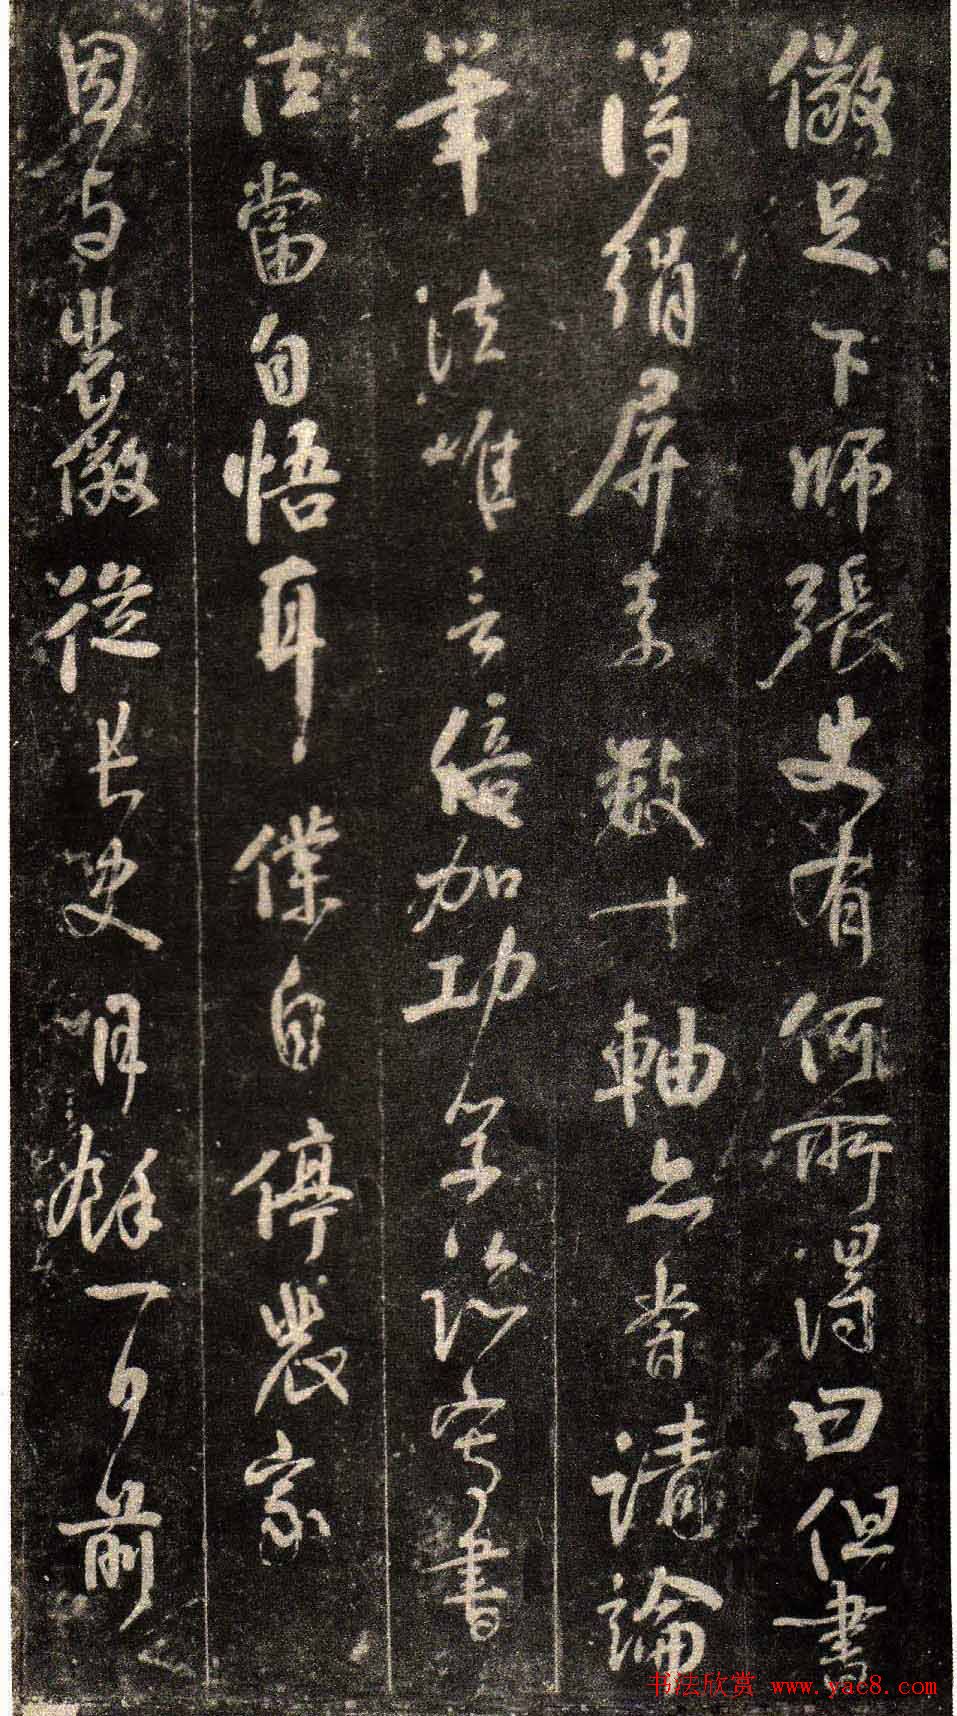 儆足下師張史有何所得曰但書
得絹屏素數十軸亦嘗請論
筆法惟言倍加功學臨寫書
法當自悟耳僕自停裴家
因与裴儆從長史月餘一日前
书法欣赏 www.yac8.com